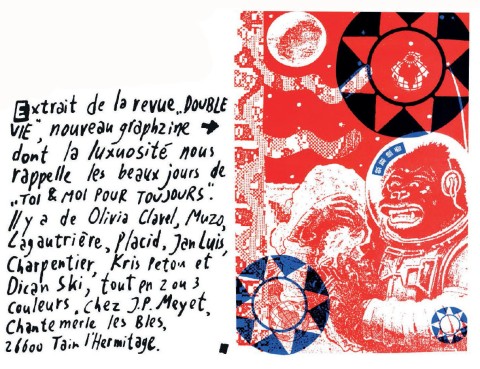 Extrait de la revue „DOUBLE
VIE", nouveau graphzine →
dont la luxuosité nous
rappelle les beaux jours de
„TOI & MOI POUR TOUJOURS".
Il y a de Olivia Clavel, Muzo,
Lagautrière, Placid, Jan Luis,
Charpentier, Kris Petou et
Dican Ski, tout en 2 ou 3
couleurs. Chez J.P. Meyet,
Chantemerle les Bles,
26600 Tain l'Hermitage.